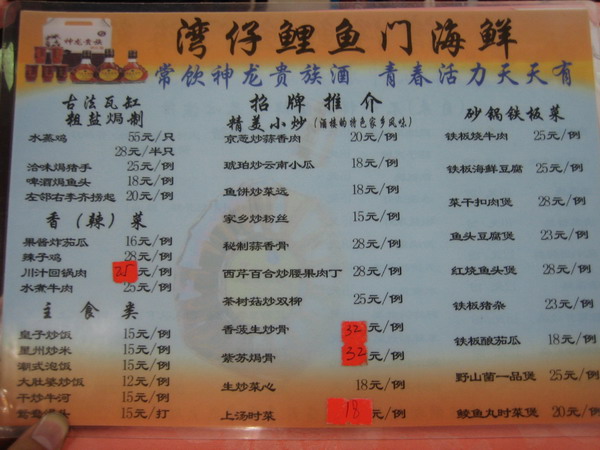 神龙贵族
湾仔鲤鱼门海鲜
常饮神龙贵族酒 青春活力天天有
古法瓦缸
粗盐焗制
水蒸鸡 55元/只
28元/半只
洽味焗猪手 25元/例
啤酒焗鱼头 18元/例
左邻右李齐捞起 20元/例
香(辣)菜
果酱炸茄瓜 16元/例
辣子鸡 28元/例
川汁回锅肉 25元/例
水煮牛肉 25元/例
主食类
皇子炒饭 15元/例
星州炒米 15元/例
潮式泡饭 15元/例
大肚婆炒饭 12元/例
干炒牛河 15元/例
鸳鸯馒头 15元/打
招牌推介
精美小炒(酒楼的特色家乡风味)
京葱炒蒜香肉 20元/例
琥珀炒云南小瓜 18元/例
鱼饼炒菜远 18元/例
家乡炒粉丝 15元/例
秘制蒜香骨 28元/例
西芹百合炒腰果肉丁 28元/例
茶树菇炒双柳 25元/例
香菠生炒骨 32元/例
紫苏焗骨 32元/例
生炒菜心 18元/例
上汤时菜 18元/例
砂锅铁板菜
铁板烧牛肉 25元/例
铁板海鲜豆腐 25元/例
菜干扣肉煲 28元/例
鱼头豆腐煲 23元/例
红烧鱼头煲 28元/例
铁板猪杂 23元/例
铁板酿茄瓜 18元/例
野山菌一品煲 25元/例
鲮鱼丸时菜煲 20元/例